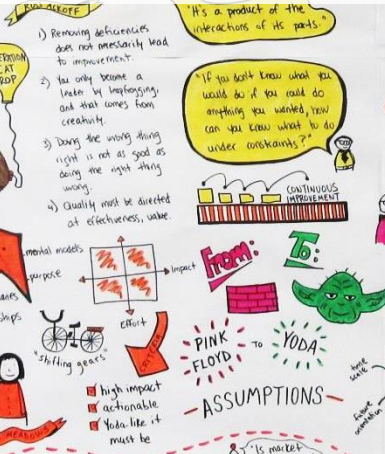 ACKOFF
1) Removing deficiencies
does not necessarily lead
to improvement.
2) You only become a
leader by leapfrogging,
and that comes from
creativity.
3) Doing the wrong thing
right is not as good as
doing the right thing
wrong.
4) Quality must be directed
at effectiveness, value.
"It's a product of the
interactions of its parts."
"If you don't know what you
would do if you could do
anything you wanted, how
can you know what to do
under constraints?"
CONTINUOUS
IMPROVEMENT
mental models
purpose
Impact
Effort
From:
To:
"shifting gears"
CRITERIA
high impact
actionable
Yoda like it
must be
PINK
FLOYD
TO
YODA
ASSUMPTIONS
time
scale
future
orientation
MEADOWS
"Is market